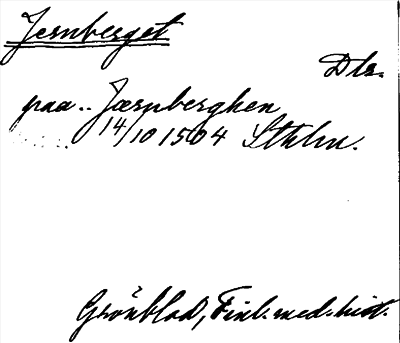 Jernberget
Dlr.
paa.. Jærnberghen
14/10 1504 Sthlm.
Grönblad, Finl. med. hist.